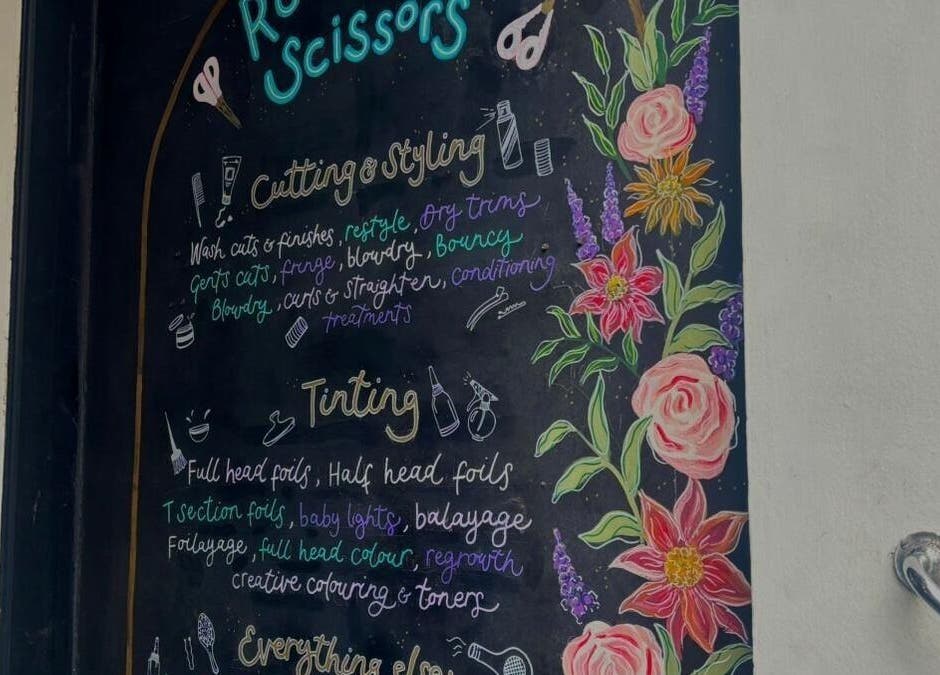 Scissors
Cutting & Styling
Wash cuts & finishes, restyle, Dry trims
Gents cuts, fringe, blowdry, Bouncy
Blowdry, curls & straighten, conditioning
treatments
Tinting
Full head foils, Half head foils
T section foils, baby lights, balayage
Foilayage, full head colour, regrowth
creative colouring & toners
Everything else